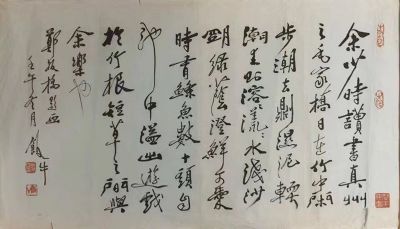 余少時讀書真州
之毛家橋日在竹中閑
步潮去則濕泥輭
沙潮生則溶漾水淺沙
明綠蔭澄鮮可愛
時有鰷魚數十頭自
池中溢出遊戲
於竹根短草之間與
余樂也
鄭板橋題畫
壬午冬月 鐵牛